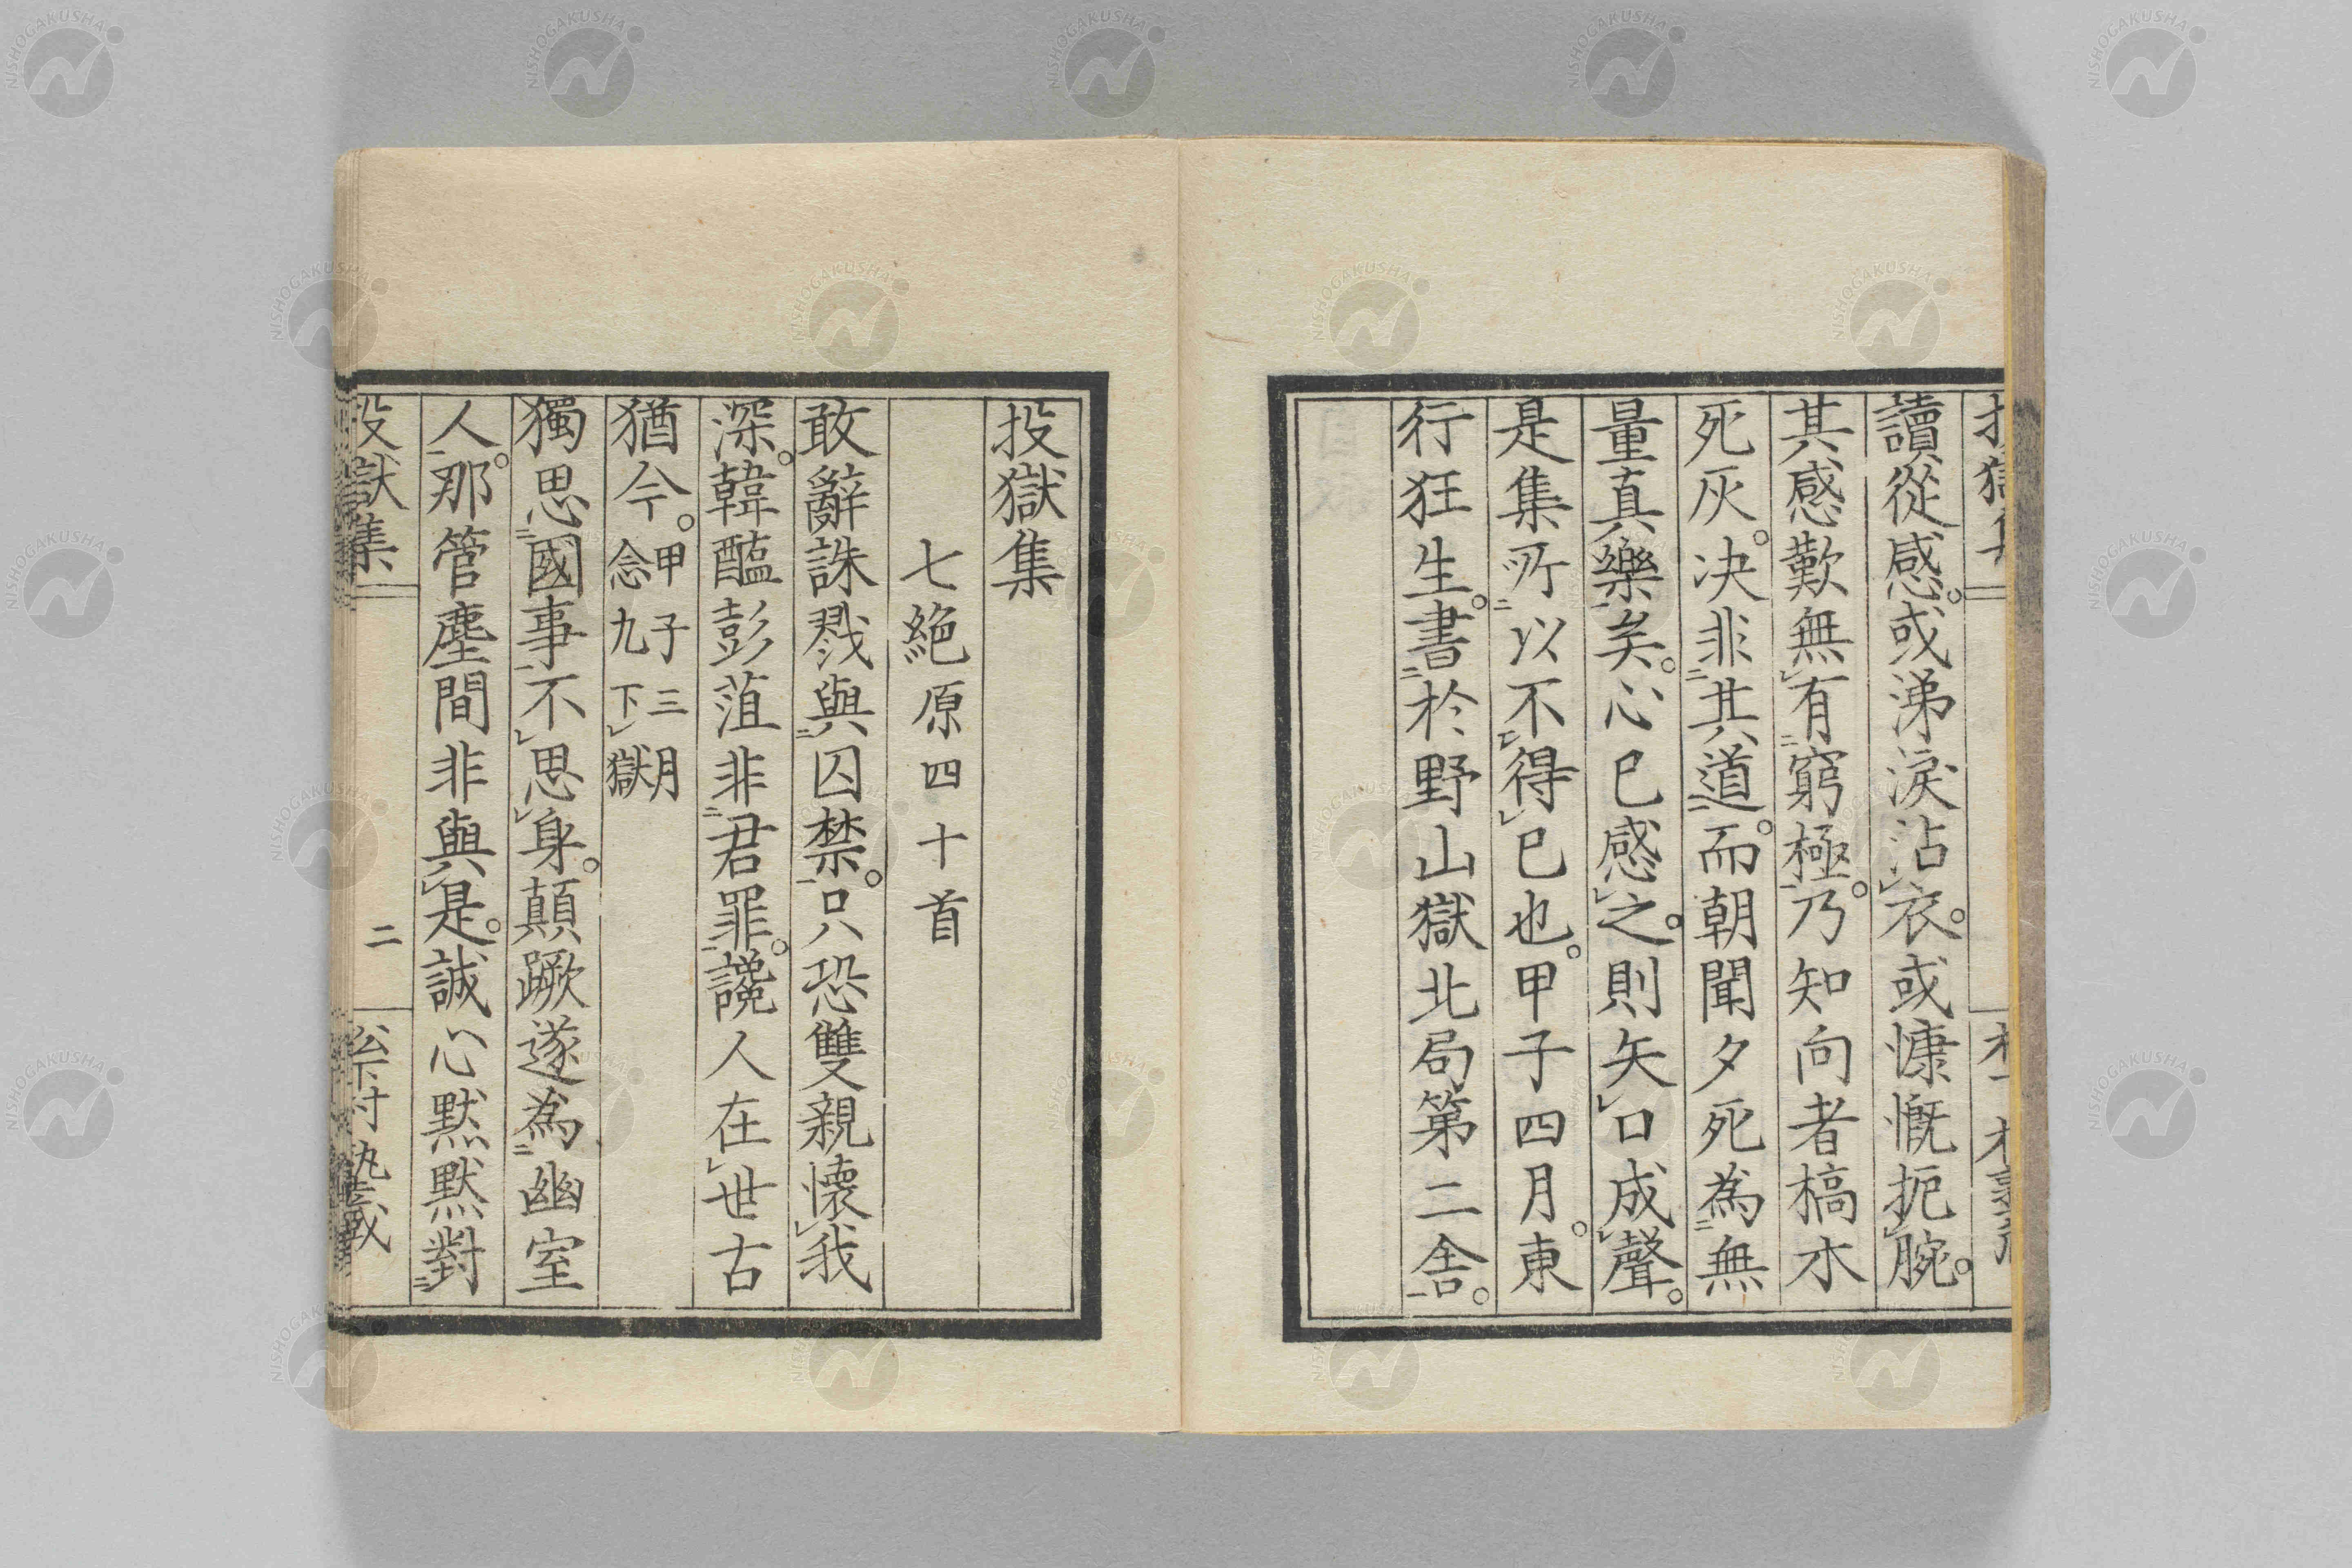 讀從感。或涕淚沾衣。或慷慨扼腕。
其感歎無有窮極。乃知向者槁木
死灰。决非其道。而朝聞夕死為無
量真樂矣。心已感之。則矢口成聲。
是集所以不得已也。甲子四月。東
行狂生。書於野山獄北局第二舎。
投獄集
七絕原四十首
敢辭誅戮與囚禁。只恐雙親懷我
深。韓醢彭菹非君罪。讒人在世古
猶今。甲子三月
念九下獄
獨思國事不思身。顛蹶遂為幽室
人。那管塵間非與是。誠心默默對
投獄集
二
NISHOGAKUSHA